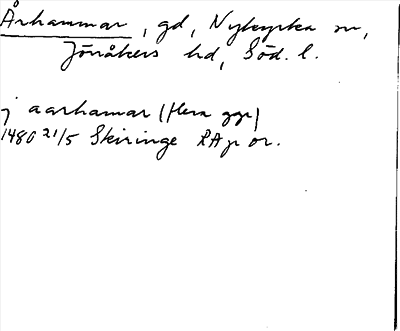 Århammar, gd, Nykyrka sn,
Jönåkers hd, Söd. l.
j aarhamar (flera ggr)
1480 21/5 Skiringe RAp or.